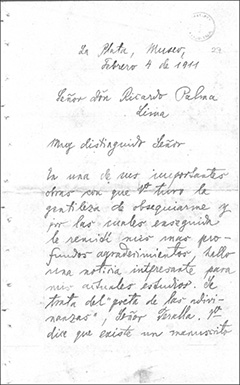 La Plata, Museo,
Febrero 4 de 1911
Señor Dón Ricardo Palma
Lima
Muy distinguido Señor
En una de sus importantes
obras con que Vd tuvo la
gentileza de obsequiarme y
por las cuales enseguida
le remití mis mas pro-
fundos agradecimientos, hallo
una noticia interesante para
mis actuales estudios. Se
trata del "poeta de las adivi-
nanzas", Señor Teralla. Vd
dice que existe un manuscrito